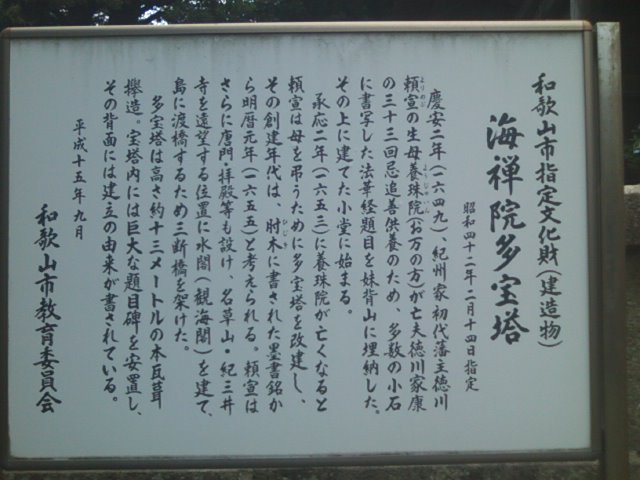 和歌山市指定文化財（建造物）
海禅院多宝塔
昭和四十二年二月十四日指定
慶安二年（一六四九）、紀州家初代藩主徳川
頼宣の生母養珠院（お万の方）が亡夫徳川家康
の三十三回忌追善供養のため、多数の小石
に書写した法華経題目を妹背山に埋納した。
その上に建てた小堂に始まる。
承応二年（一六五三）に養珠院が亡くなると
頼宣は母を弔うために多宝塔を改建し、
その創建年代は、肘木に書された墨書銘か
ら明暦元年（一六五五）と考えられる。頼宣は
さらに唐門・拝殿等も設け、名草山・紀三井
寺を遠望する位置に水閣（観海閣）を建て、
島に渡橋するため三断橋を架けた。
多宝塔は高さ約十三メートルの本瓦葺
欅造。宝塔内には巨大な題目碑を安置し、
その背面には建立の由来が書されている。
平成十五年九月
和歌山市教育委員会